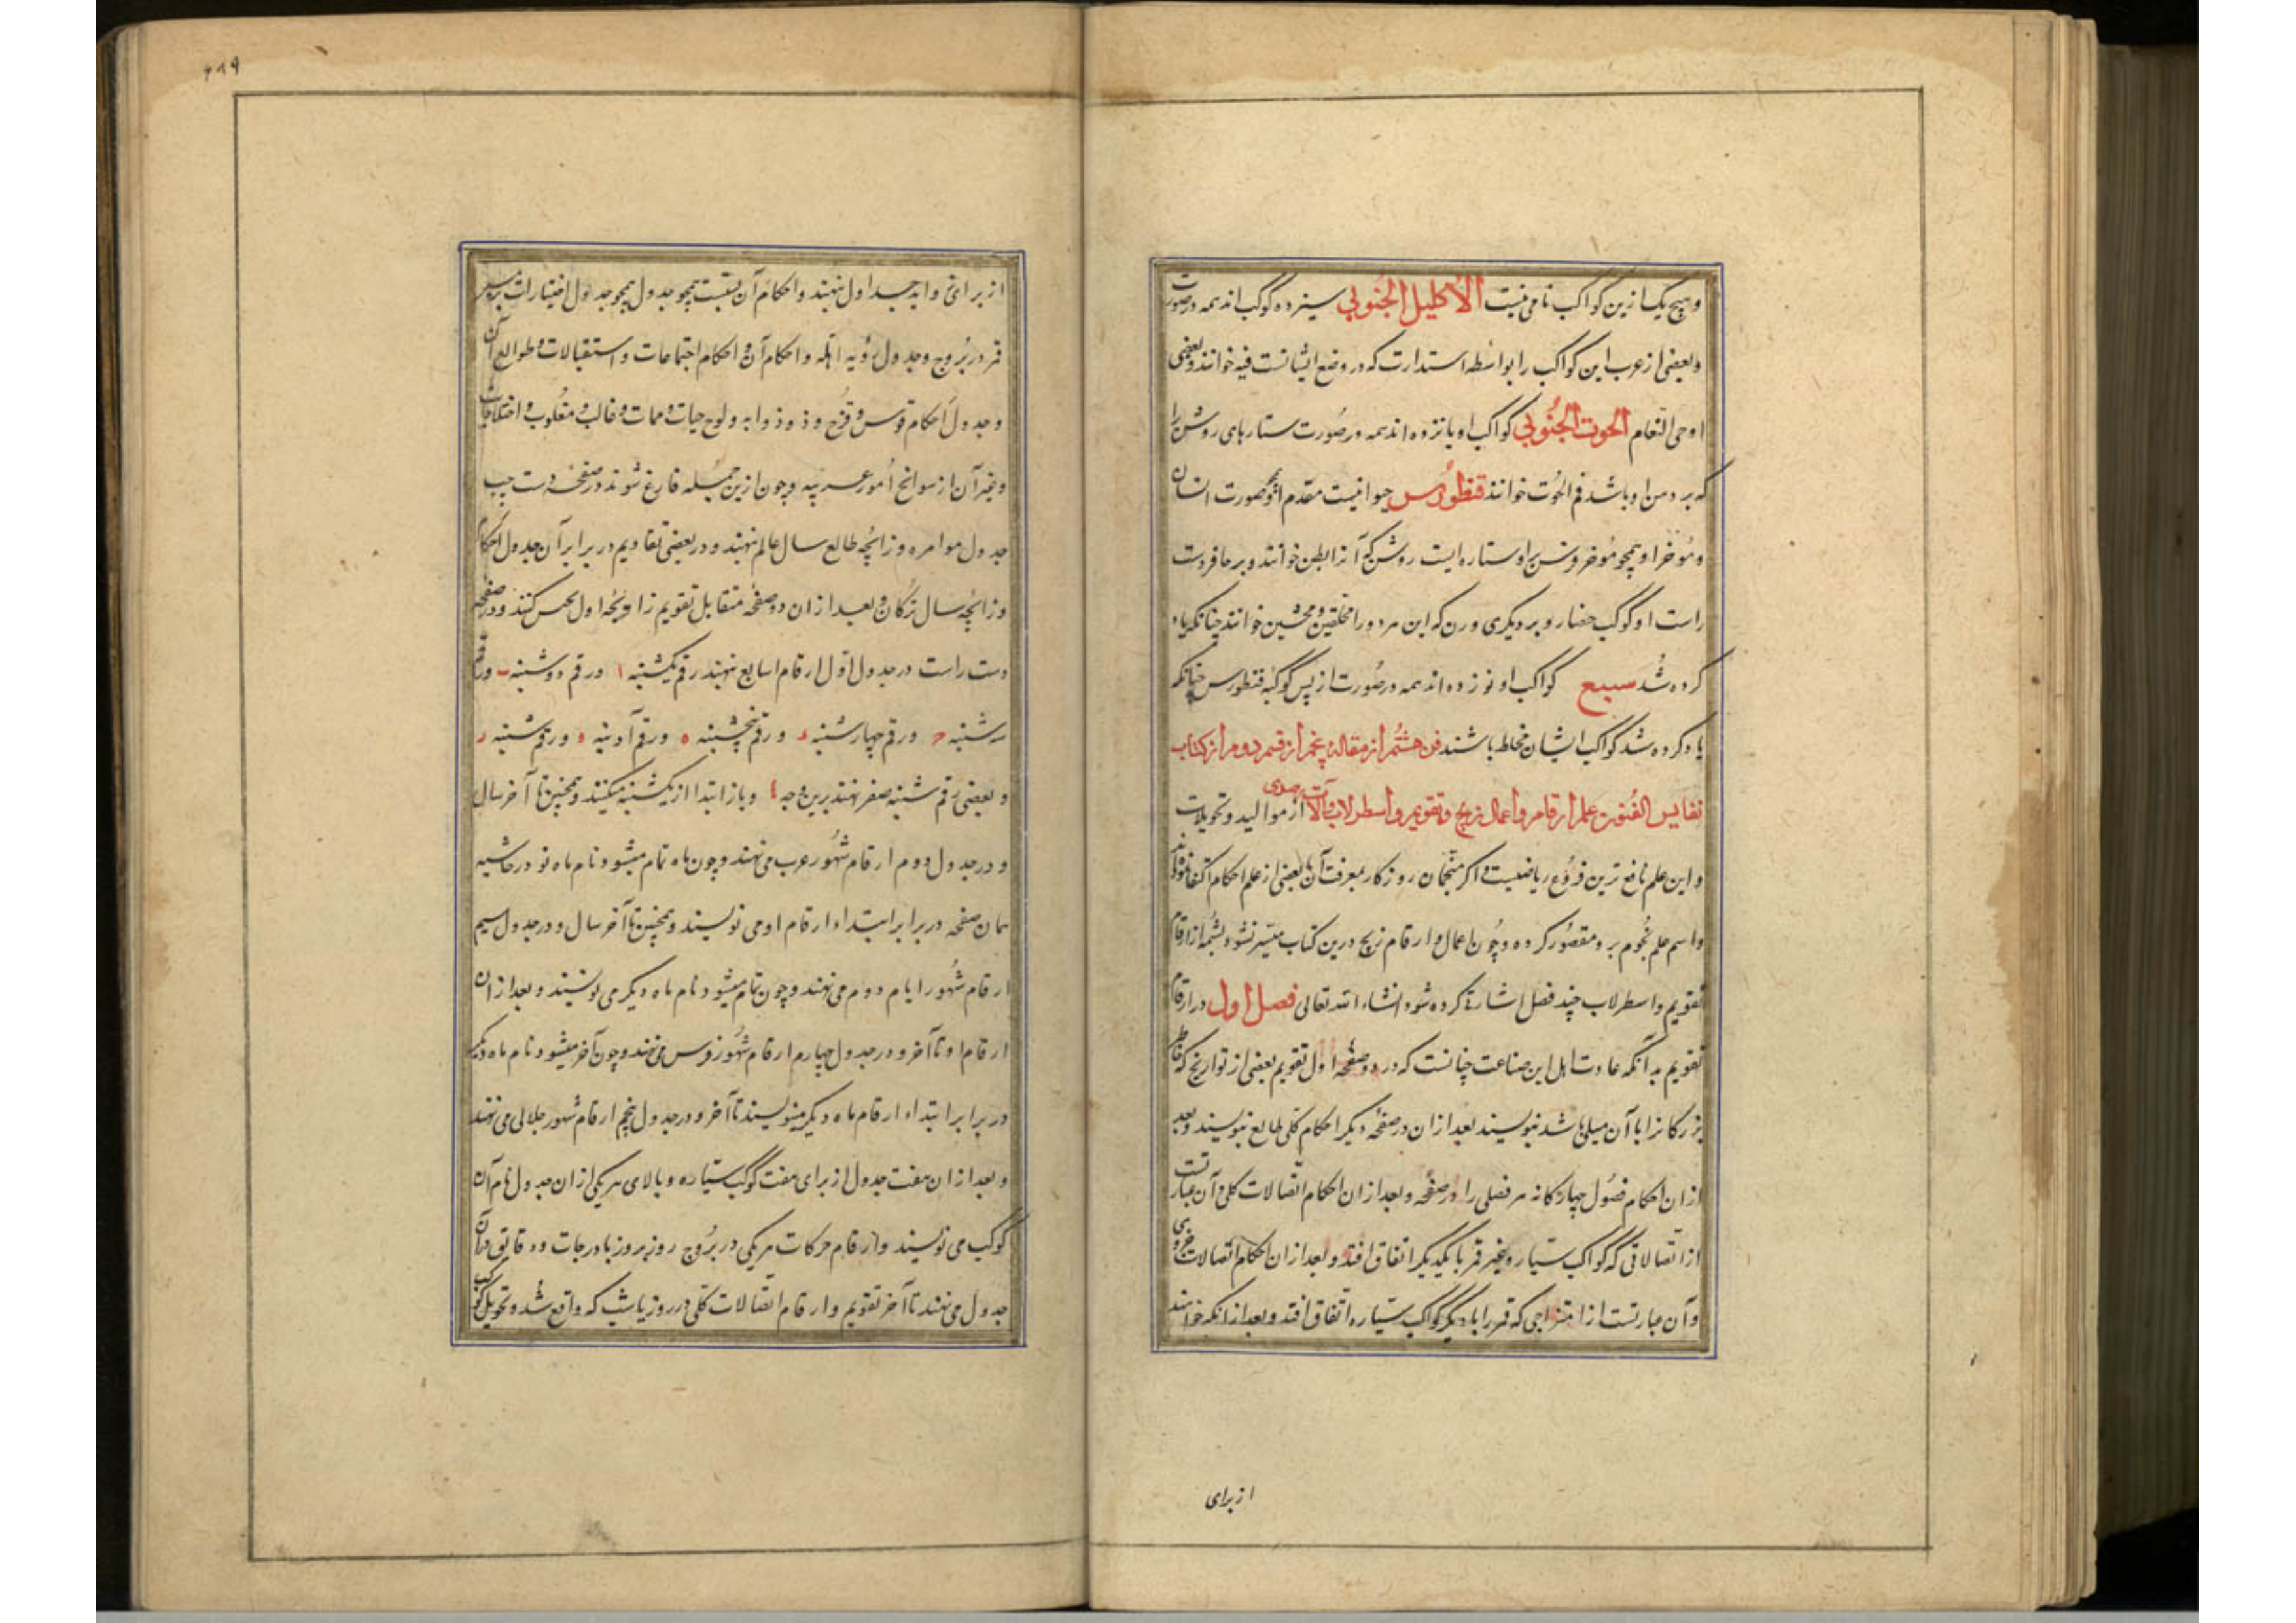 وهیچ یک ازین کواکب نامی نیست الاکلیل الجنوبی سیزده کوکب اند همه در صورت
وبعضی از عرب این کواکب را بواسطه استدارت که در وضع ایشانست قبه خوانند وبعضی
ادحی النعام الحوت الجنوبی کواکب او یازده اند همه در صورت ستارهای روشن را
که بر دهن او باشد فم الحوت خوانند قنطورس حیوانیست مقدم او همچو صورت انسان
ومؤخر او همچو مؤخر فرس بر او ستاره ایست روشن که آنرا بطن خوانند وبر حافر دست
راست او کوکب حضار وبر دیگری وزن که این هر دو را محلفین ومحنثین خوانند چنانکه یاد
کرده شد سبع کواکب او نوزده اند همه در صورت از پس کوکبه قنطورس چنانکه
یاد کرده شد کواکب ایشان مخلط باشند فن هشتم از مقاله پنجم از قسم دوم از کتاب
نفایس الفنون علم ارقام واعمال زیج وتقویم واسطرلاب وآلات رصدی از موالید وتحویلات
واین علم نافع ترین فروع ریاضیست واکر منجمان روزکار بمعرفت آن بعضی از علم احکام اکتفا نموده اند
واسم علم نجوم برو مقصور کرده وچون اعمال وارقام زیج درین کتاب میسر نشود بشمه از ارقام
تقویم واسطرلاب چند فصل اشارة کرده شود انشاء الله تعالی فصل اول در ارقام
تقویم بدآنکه عادت اهل این صناعت چنانست که در دو صفحه اول تقویم بعضی از تواریخ که خاطر
بزرکانرا با آن میلی باشد بنویسند بعد ازان در صفحه دیگر احکام کلی طالع بنویسند وبعد
ازان احکام فصول چهارکانه هر فصلی را در صفحه وبعد ازان احکام اتصالات کلی وآن عبارتست
از اتصالاتی که کواکب سیاره بغیر قمر با یکدیگر اتفاق افتد وبعد ازان احکام اتصالات جزوی
وآن عبارتست از امتزاجی که قمر را با دیگر کواکب سیاره اتفاق افتد وبعد ازانکه خوانند
از برای
از برای واید جداول نهند واحکام آن بنسبت همچو جدول همچو جدول اختیارات بر مسیر
قمر در بروج وجدول رؤیه اهله واحکام آن واحکام اجتماعات واستقبالات وطوالع آن
وجدول احکام قوس وقزح وذوذوابه ولوح حیات وممات وغالب ومغلوب واختلاجات
وغیر آن از سوانح امور وچون ازین جمله فارغ شوند در صفحه دست چپ
جدول موامره وزایچه طالع سال عالم نهند ودر بعضی تقاویم در برابر آن جدول احکام
وزایچه سال ترکان وبعد ازان دو صفحه متقابل تقویم زا اول کنند ودر صفحه
دست راست در جدول اول ارقام اسابیع نهند رقم یکشنبه ا ورقم دوشنبه ب ورقم
سه شنبه ج ورقم چهارشنبه د ورقم پنجشنبه ه ورقم آدینه و ورقم شنبه ز
وبعضی رقم شنبه صفر نهند برین وجه وباز ابتدا از یکشنبه میکنند وهمچنین تا آخر سال
ودر جدول دوم ارقام شهور عرب می نهند وچون ماه تمام میشود نام ماه نو در حاشیه
همان صفحه در برابر ابتداء ارقام او می نویسند وهمچنین تا آخر سال ودر جدول سیم
ارقام شهور ایام دوم می نهند وچون تمام میشود نام ماه دیگر می نویسند وبعد ازان
ارقام او تا آخر ودر جدول چهارم ارقام شهور فرس می نهند وچون آخر میشود نام ماه دیگر
در برابر ابتداء ارقام ماه دیگر مینویسند تا آخر ودر جدول پنجم ارقام شهور جلالی می نهند
وبعد ازان هفت جدول از برای هفت کوکب سیاره وبالای هر یکی ازان جدول نام آن
کوکب می نویسند وارقام حرکات هر یکی در بروج روز بروز با درجات ودقایق دران
جدول می نهند تا آخر تقویم وارقام اتصالات کلی در روز یا شب که واقع شد وتحویل کوکب